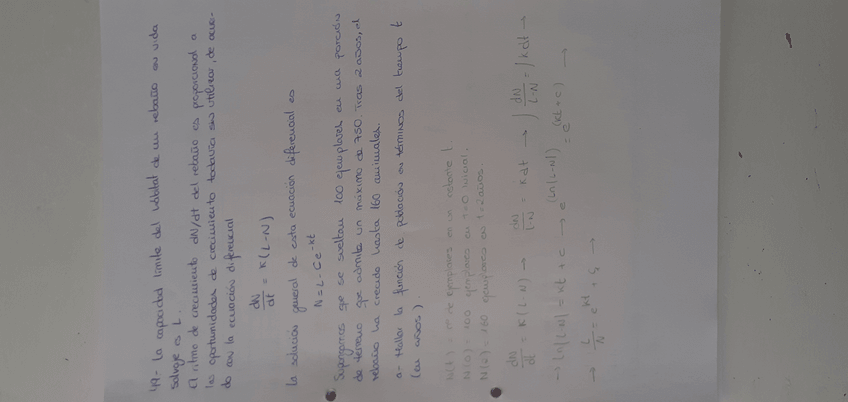 49.- La capacidad límite del hábitat de un rebaño en vida
salvaje es L.
El ritmo de crecimiento dN/dt del rebaño es proporcional a
las oportunidades de crecimiento todavía sin utilizar, de acuer-
do con la ecuación diferencial
dN/dt = K(L-N)
La solución general de esta ecuación diferencial es
N = L - Ce^-kt
Supongamos que se sueltan 100 ejemplares en una porción
de terreno que admite un máximo de 750. Tras 2 años, el
rebaño ha crecido hasta 160 animales.
a- Hallar la función de población en términos del tiempo t
(en años)
N(t) = nº de ejemplares en un rebaño
N(0) = 100 ejemplares en t=0 inicial.
N(2) = 160 ejemplares en t=2 años.
dN/dt = K(L-N) → dN/L-N = Kdt → ∫ dN/L-N = ∫ Kdt →
→ Ln|L-N| = Kt + C → e^(Ln|L-N|) = e^(Kt+C) →